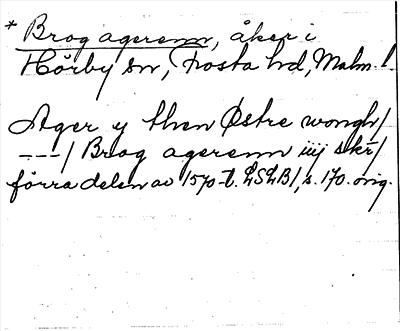 * Brog agerenn, åker i
Hörby sn, Frosta hd, Malm. l.
Ager y then Østre wongh/
---/ Brog agerenn iiij skr/
förra delen av 1570-t. LSLB1, s. 170. orig.